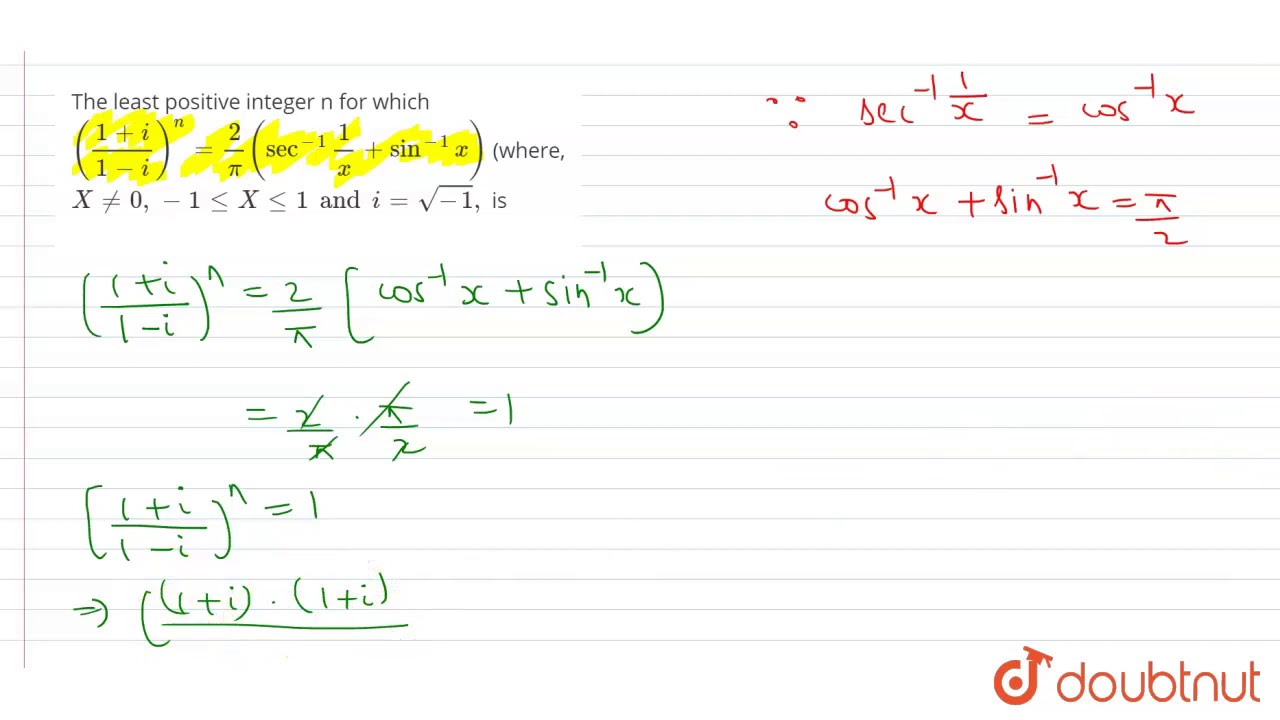 The least positive integer n for which
((1 + i)/(1 − i))^n = 2/π (sec⁻¹ 1/x + sin⁻¹ x) (where,
X ≠ 0, − 1 ≤ X ≤ 1 and i = √−1, is
∵ sec⁻¹ 1/x = cos⁻¹ x
cos⁻¹ x + sin⁻¹ x = π/2
((1+i)/(1−i))^n = 2/π [cos⁻¹ x + sin⁻¹ x)
= 2/π · π/2 = 1
[(1+i)/(1−i))^n = 1
⇒ ((1+i) · (1+i)
doubtnut